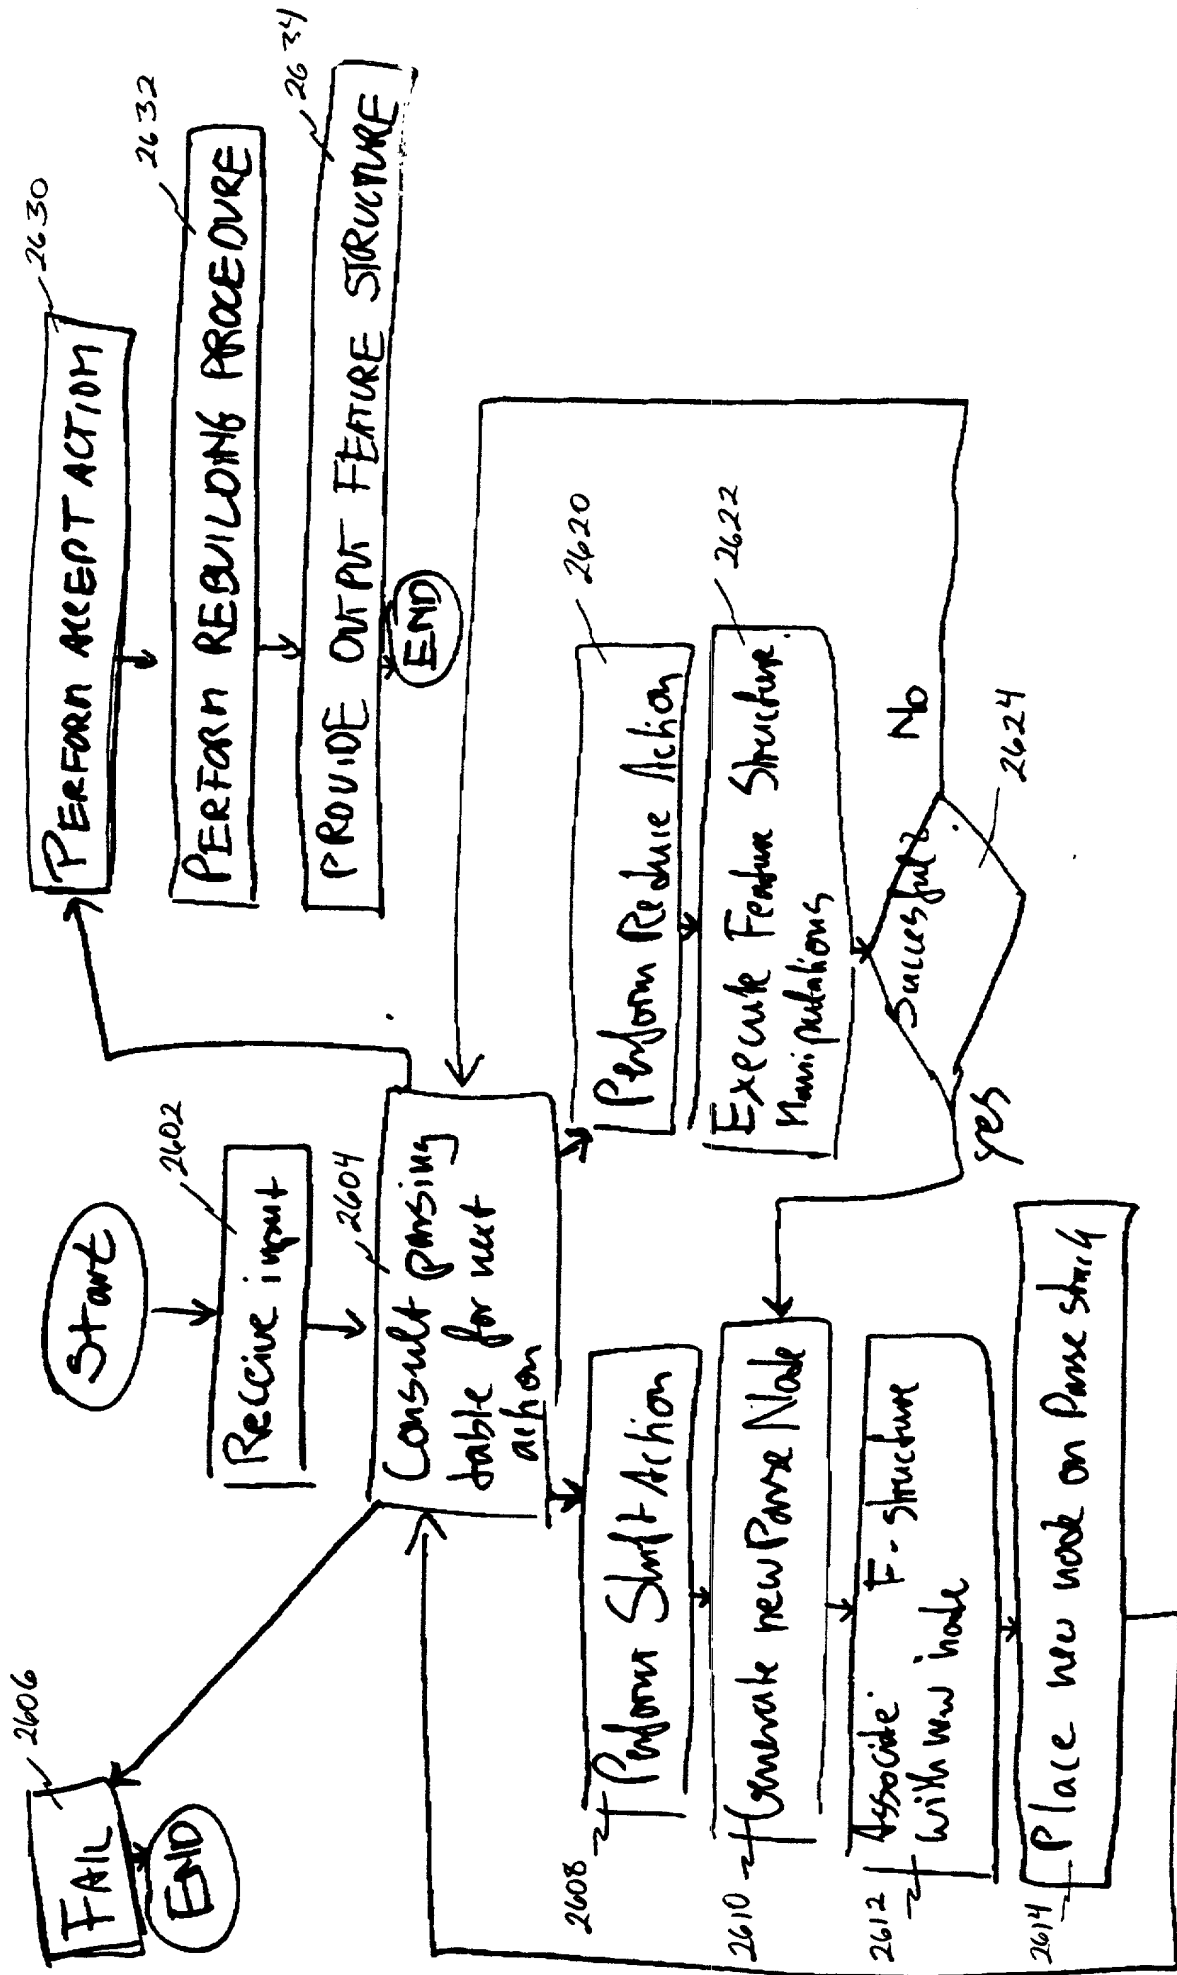 Start
2602
Receive input
2604
Consult parsing
table for next
action
2606
FAIL
END
2608
Perform Shift Action
2610
Generate new Parse Node
2612
Associate F-structure
with new node
2614
Place new node on Parse stack
2620
Perform Reduce Action
2622
Execute Feature Structure
Manipulations
2624
Successful?
No
Yes
2630
PERFORM ACCEPT ACTION
2632
PERFORM REBUILDING PROCEDURE
2634
PROVIDE OUTPUT FEATURE STRUCTURE
END